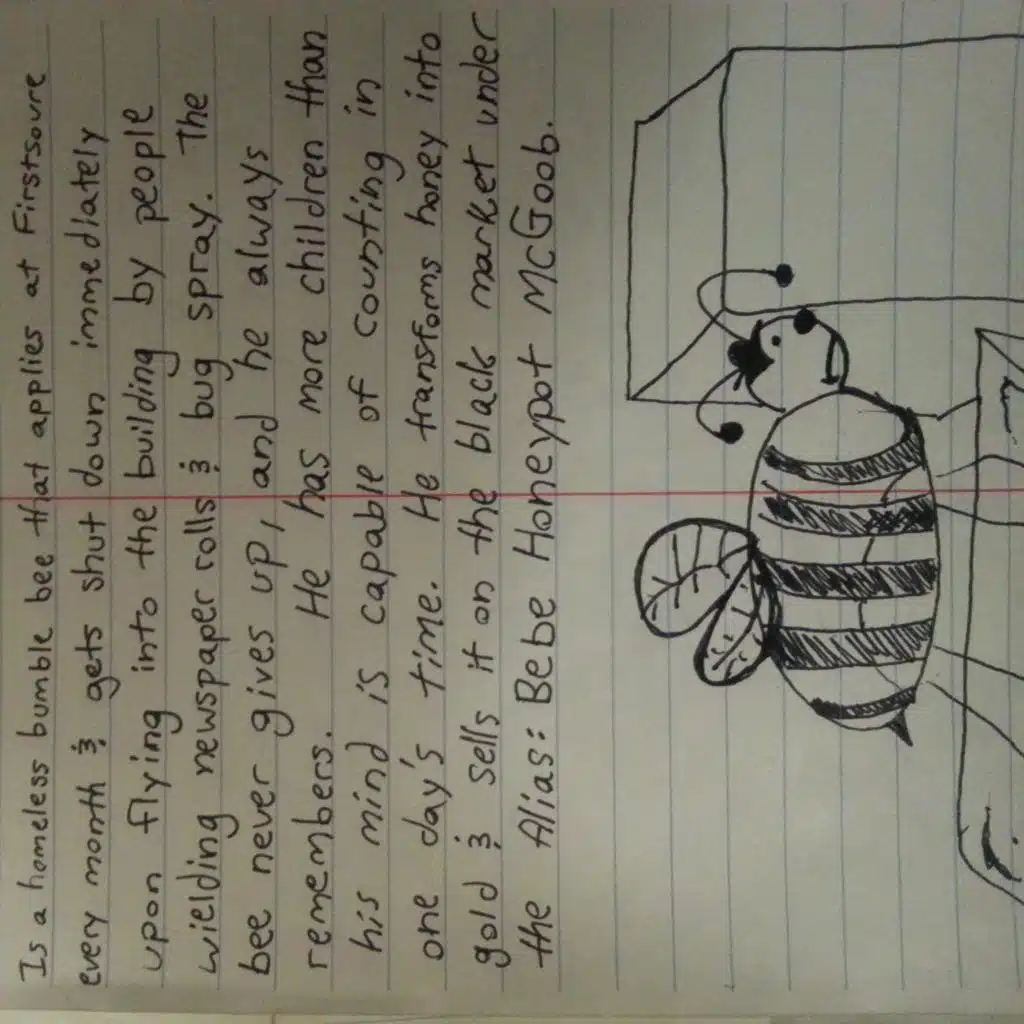 Is a homeless bumble bee that applies at Firstsoure
every month & gets shut down immediately
upon flying into the building by people
wielding newspaper rolls & bug spray. The
bee never gives up, and he always
remembers. He has more children than
his mind is capable of counting in
one day's time. He transforms honey into
gold & sells it on the black market under
the Alias: Bebe Honeypot McGoob.